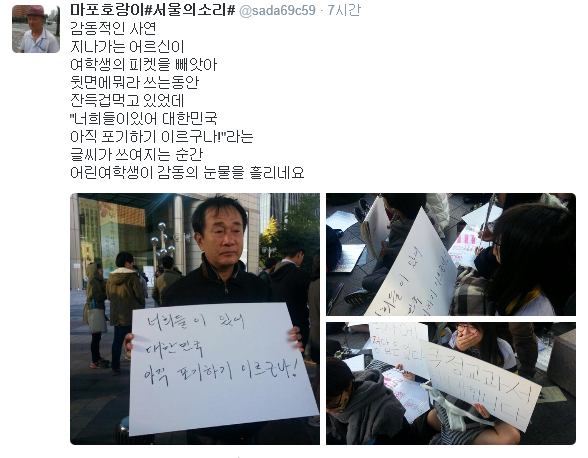 마포호랑이#서울의소리# @sada69c59 · 7시간
감동적인 사연
지나가는 어르신이
여학생의 피켓을 빼앗아
뒷면에뭐라 쓰는동안
잔득겁먹고 있었데
"너희들이있어 대한민국
아직 포기하기 이르구나!"라는
글씨가 쓰여지는 순간
어린여학생이 감동의 눈물을 흘리네요
너희들이 있어
대한민국
아직 포기하기 이르구나!
너희들이 있어
국정교과서